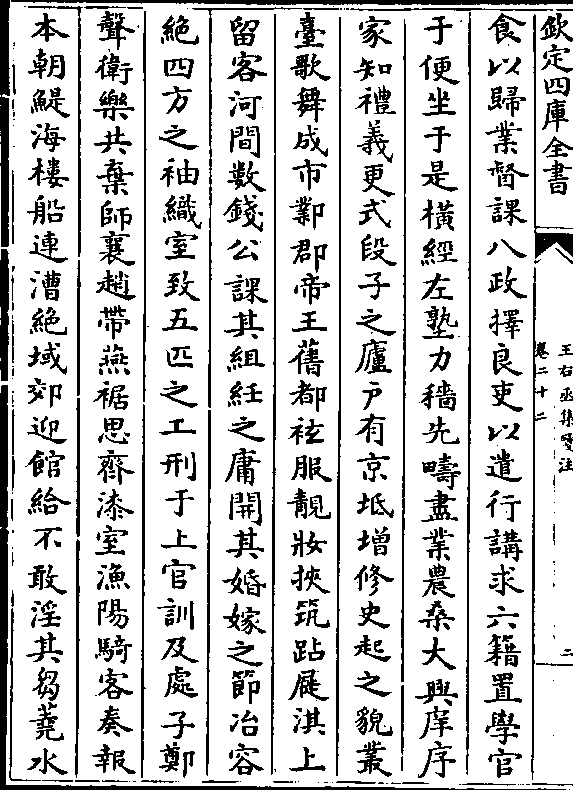 欽定四庫全書
王右丞集箋注
卷二十二
二
食以歸業督課八政擇良吏以遣行講求六籍置學官
于便坐于是橫經左塾力穡先疇盡業農桑大興庠序
家知禮義更式段子之廬户有京坻增修史起之貌叢
臺歌舞成市鄴郡帝王舊都袨服靚妝挾筑跕屣淇上
留客河間數錢公課其組紝之庸開其婚嫁之節冶容
絶四方之袖織室致五匹之工刑于上官訓及處子鄭
聲衛樂共棄師襄趙帶燕裾思齊漆室漁陽騎客奏報
本朝鯷海樓船連漕絶域郊迎館給不敢淫其芻蕘水